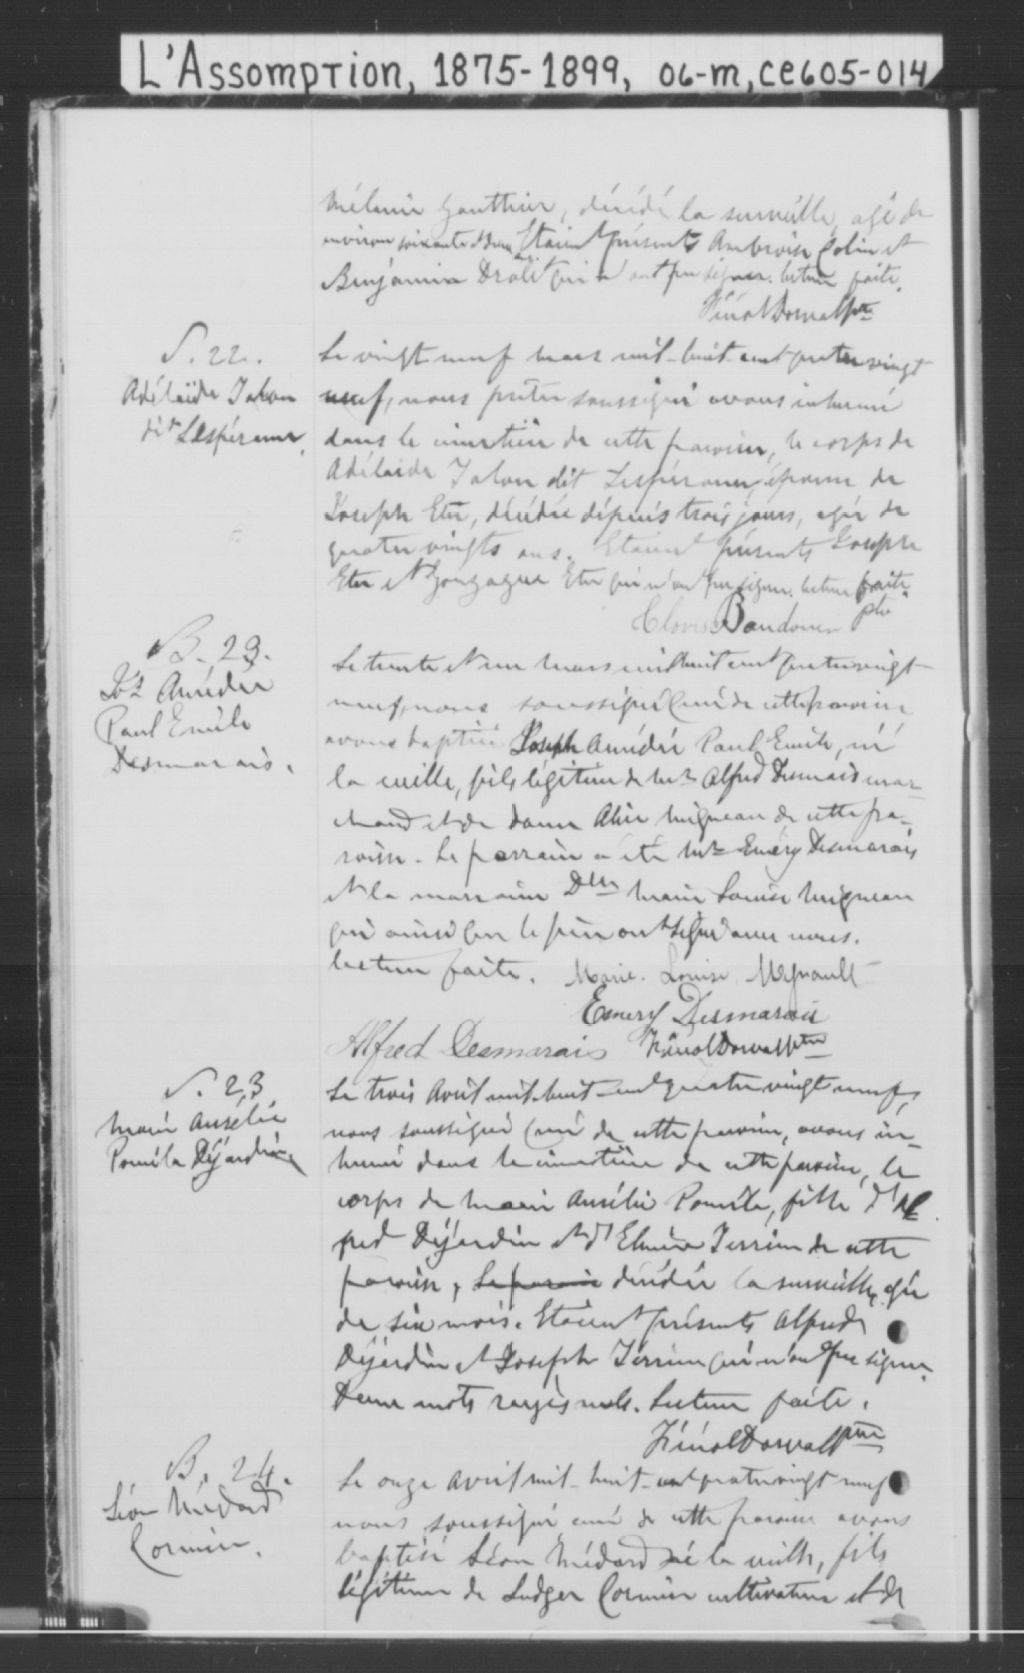 L'Assomption, 1875-1899, 06-M, CE605-014
Mélanie Gauthier, décédé la surveille, agé de
environ soixante et deux ans. Etaient présents Ambroise Colin et
Benjamin Drolet qui n'ont pu signer. lecture faite.
Férréol Dorval ptre
S. 22.
Adélaïde Talon
dit Lespérance.
Le vingt neuf mars mil-huit-cent quatre vingt
neuf, nous prêtre soussigné avons inhumé
dans le cimetière de cette paroisse, le corps de
Adélaïde Talon dit Lespérance, épouse de
Joseph Etu, décédée depuis trois jours, agée de
quatre vingts ans. Etaient présents Joseph
Etu et Gonzague Etu qui n'ont pu signer. lecture faite.
Clovis Beaudouin ptre
B. 23.
Jos. Amédée
Paul Emile
Desmarais.
Le trente et un mars mil huit cent quatre vingt
neuf, nous soussigné curé de cette paroisse
avons baptisé Joseph Amédée Paul Emile, né
la veille, fils légitime de Mr. Alfred Desmarais mar-
chand et de Dame Alice Migneau de cette pa-
roisse. Le parrain a été Mr. Emery Desmarais
et la marraine Dlle Marie Louise Migneau
qui ainsi que le père ont signé avec nous.
lecture faite. Marie. Louise. Mignault
Emery Desmarais
Alfred Desmarais Férréol Dorval ptre
S. 23
Marie Aurélie
Poméla Déjardin
Le trois Avril mil-huit-cent quatre vingt neuf,
nous soussigné curé de cette paroisse, avons in-
humé dans le cimetière de cette paroisse, le
corps de Marie Aurélie Poméla, fille d'Al-
fred Déjardin et d'Elmire Terrien de cette
paroisse, décédée la surveille, agée
de six mois. Etaient présents Alfred
Déjardin et Joseph Terrien qui n'ont pu signer.
Deux mots rayés nuls. Lecture faite.
Férréol Dorval ptre
B. 24.
Léon Médard
Cormier.
Le onze Avril mil-huit-cent quatre vingt neuf
nous soussigné curé de cette paroisse avons
baptisé Léon Médard né la veille, fils
légitime de Ludger Cormier cultivateur et de